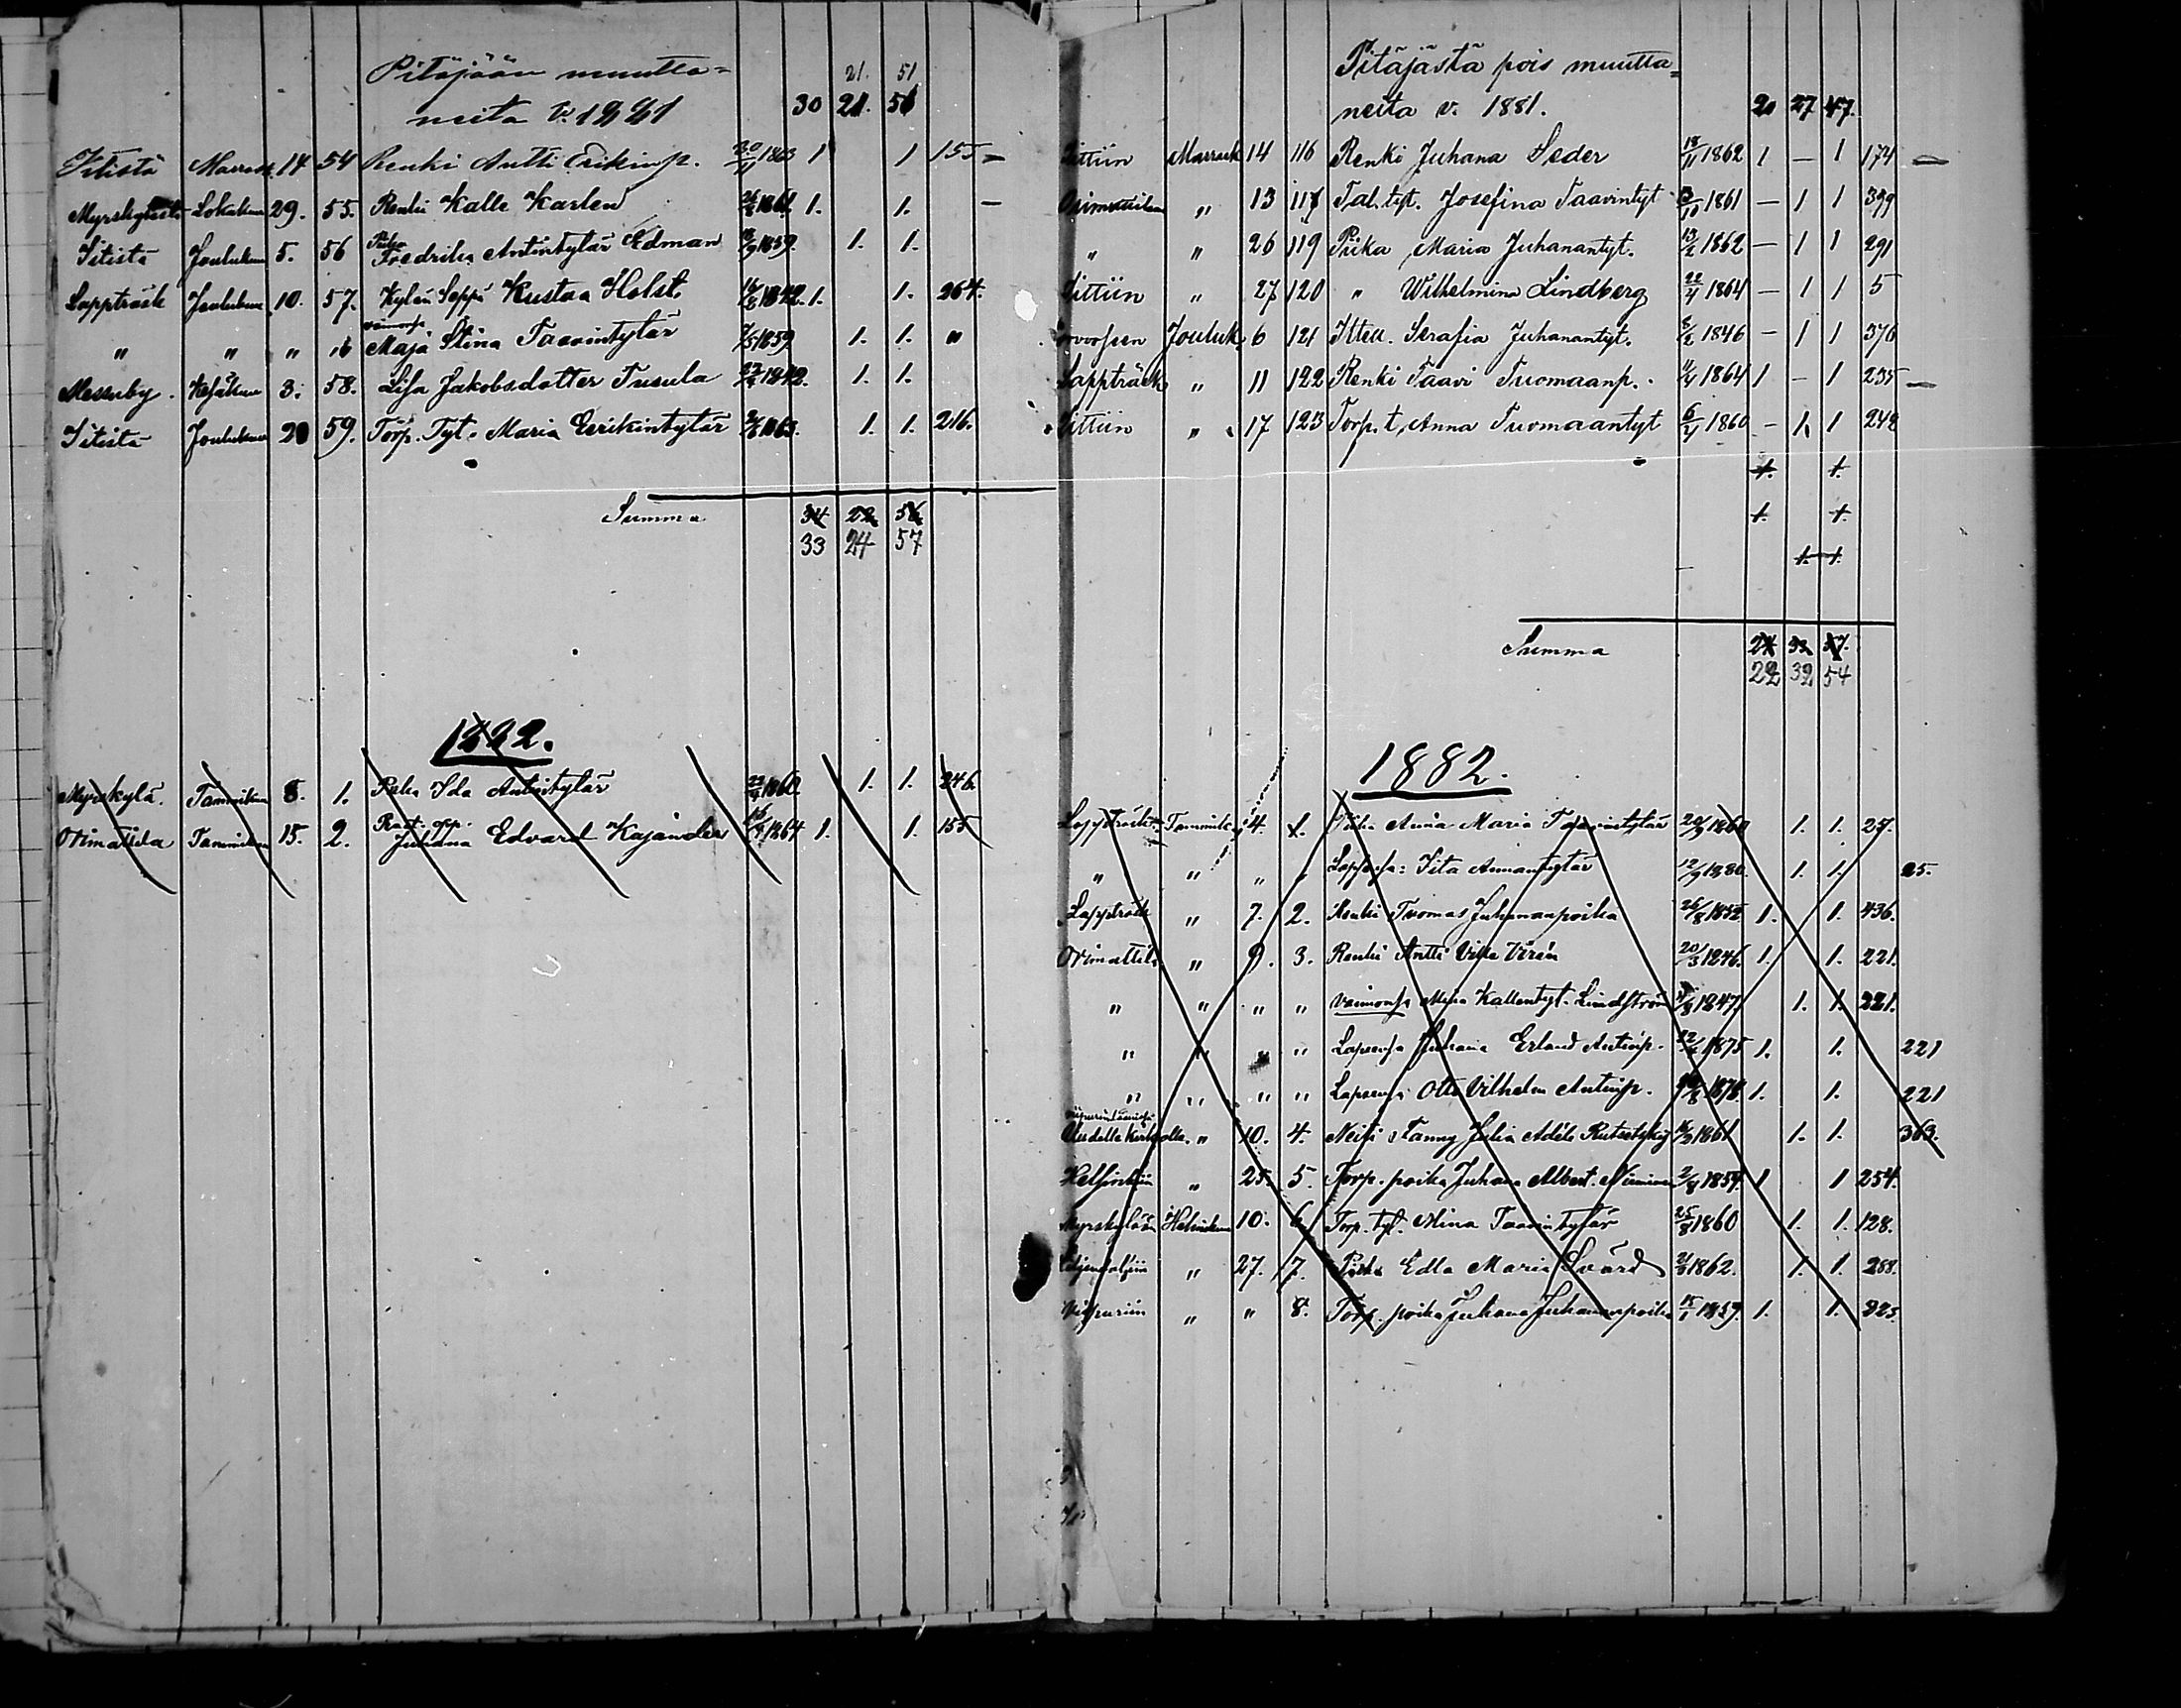 Pitäjään muutta= 21. 51
neita v. 1881 30 21. 51
Iitistä Marrask. 14 54 Renki Antti Erikinp. 30/11 1863 1 1 155 –
Lokakuu 29. 55. Renki Kalle Karlen 1861. 1. 1. –
Iitistä Joulukuu 5. 56 Piika Fredrika Antintytär Edman 1859. 1. 1.
Lappträsk Jouluku 10. 57. Kylän Seppä Kustaa Holst. 16/8 1842. 1. 1. 264.
" " " " vaimonsa Maja Stina Taavintytär 1859 1. 1. "
Messuby. Kesäkuu 3. 58. Lisa Jakobsdotter Tusula 1842. 1. 1.
Iitistä Joulukuu 20 59. Torp. Tyt. Maria Eerikintytär 1863. 1. 1. 216.
Summa 34 23 56
33 24 57
1882.
Myrskylä. Tammikuu 8. 1. Piika Ida Antintytär 1860. 1. 1. 246.
Orimattila Tammikuu 15. 2. Juliana Edvard Kajander 1864 1. 1. 155
Pitäjästä pois muutta=
neita v. 1881. 20 27 47.
Iittiin Marrask 14 116 Renki Juhana Seder 18/11 1862 1 – 1 174 –
Orimattilan " 13 117 Tal. tyt. Josefina Taavintyt 1861 – 1 1 399
" " 26 119 Piika Maria Juhanantyt. 13/2 1862 – 1 1 291
Iittiin " 27 120 " Wilhelmina Lindberg 22/4 1864 – 1 1 5
Jouluk. 6 121 Itsell. Serafia Juhanantyt. 8/2 1846 – 1 1 376
Lappträsk " 11 122 Renki Taavi Tuomaanp. 11/4 1864 1 – 1 235 –
Iittiin " 17 123 Torp. t. Anna Tuomaantyt 6/4 1860 – 1 1 242
1. 1.
1. 1.
1. 1.
Summa
22 32 54
1882.
Lappträsk Tammik. 4. 1. Piika Anna Maria Taavintytär 20/9 1860 1. 1. 27.
" " " " Lapsensa: Iita Annantytär 12/9 1880. 1. 1. 25.
Lappträsk " 7. 2. Renki Tuomas Juhananpoika 26/8 1852 1. 1. 436.
Orimattila " 9. 3. Renki Antti Ville Virén 20/3 1846. 1. 1. 221.
" " " " vaimonsa Maja Kallentyt. Lindström 1847. 1. 1. 221.
" " " " Lapsensa Juhana Erland Antinp. 1875 1. 1. 221
" " " " Lapsensa Otto Vilhelm Antinp. 1878. 1. 1. 221
Uudelle Kirkolle. " 10. 4. Neiti Fanny Julia Adéle 1861 1. 1. 363.
Helsinkiin " 25. 5. Torp. poika Juhana Albert Nieminen 2/8 1854. 1 1 254.
Myrskylään Helmikuu 10. 6. Torp. tyt. Miina Taavintytär 25/8 1860 1. 1. 128.
" 27. 7. Piika Edla Maria Svärd 1862. 1. 1. 288.
Viipuriin " " 8. Torp. poika Juhana Juhananpoika 15/1 1859. 1. 1. 223.